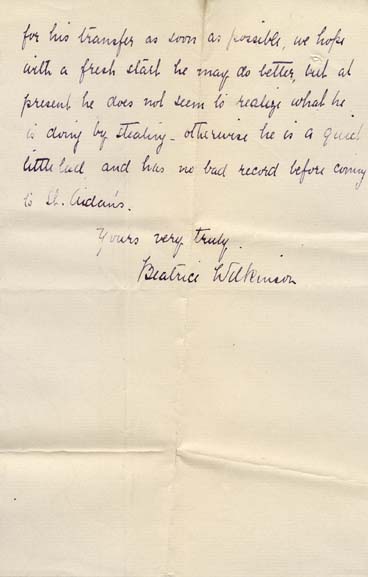 for his transfer as soon as possible, we hope
with a fresh start he may do better, but at
present he does not seem to realize what he
is doing by stealing - otherwise he is a quiet
little lad, and has no bad record before coming
to St. Aidan's.
Yours very truly.
Beatrice Wilkinson